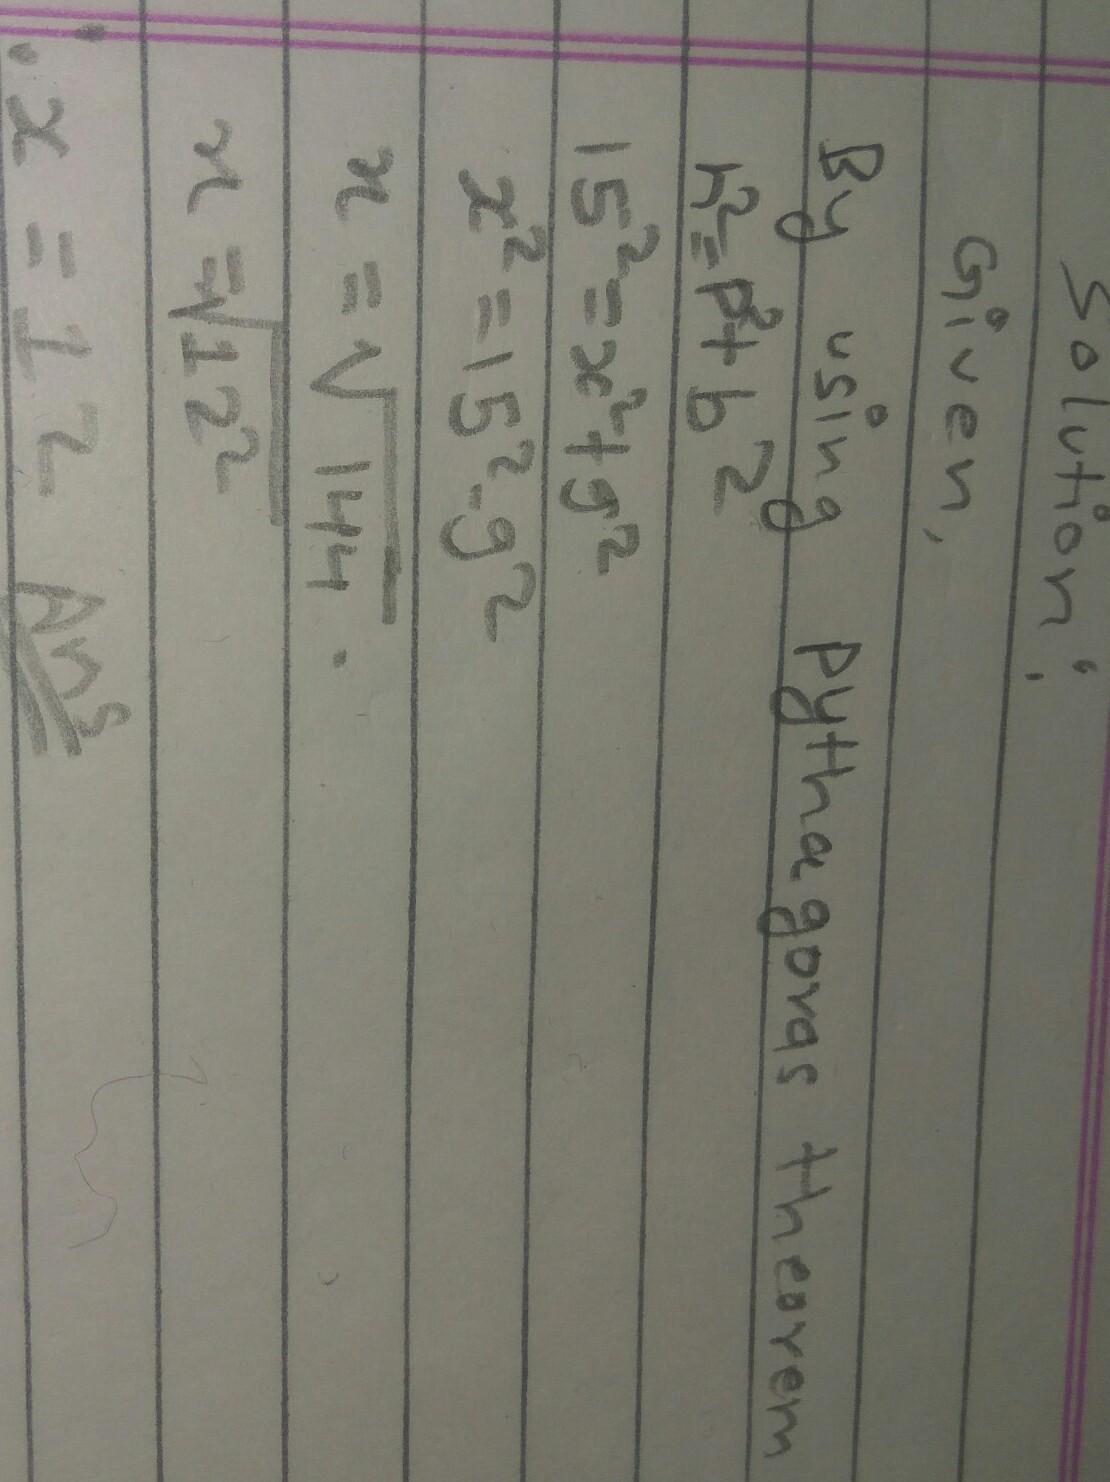 Solution:
Given,
By using pythagoras theorem
h²=p²+b²
15²=x²+9²
x²=15²-9²
x=√144.
x=√12²
∴x=12 Ans